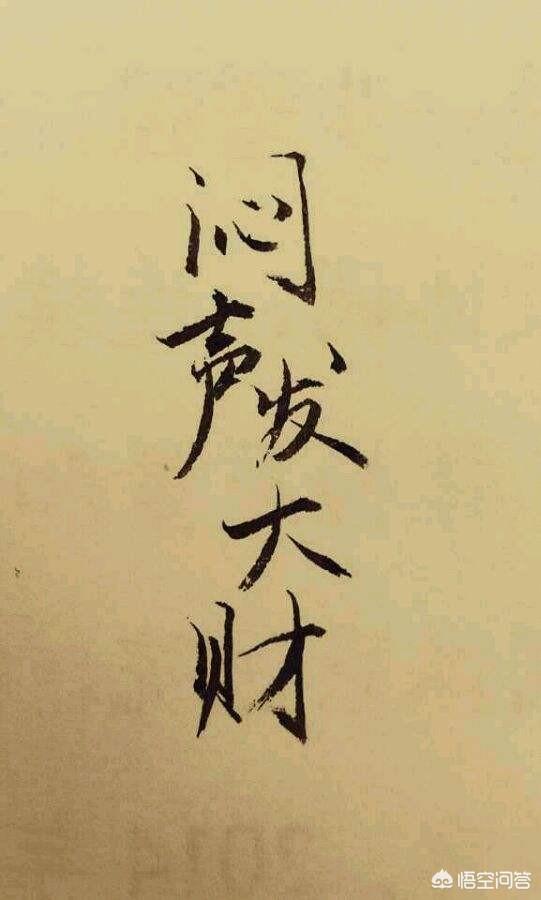 闷声发大财
悟空问答